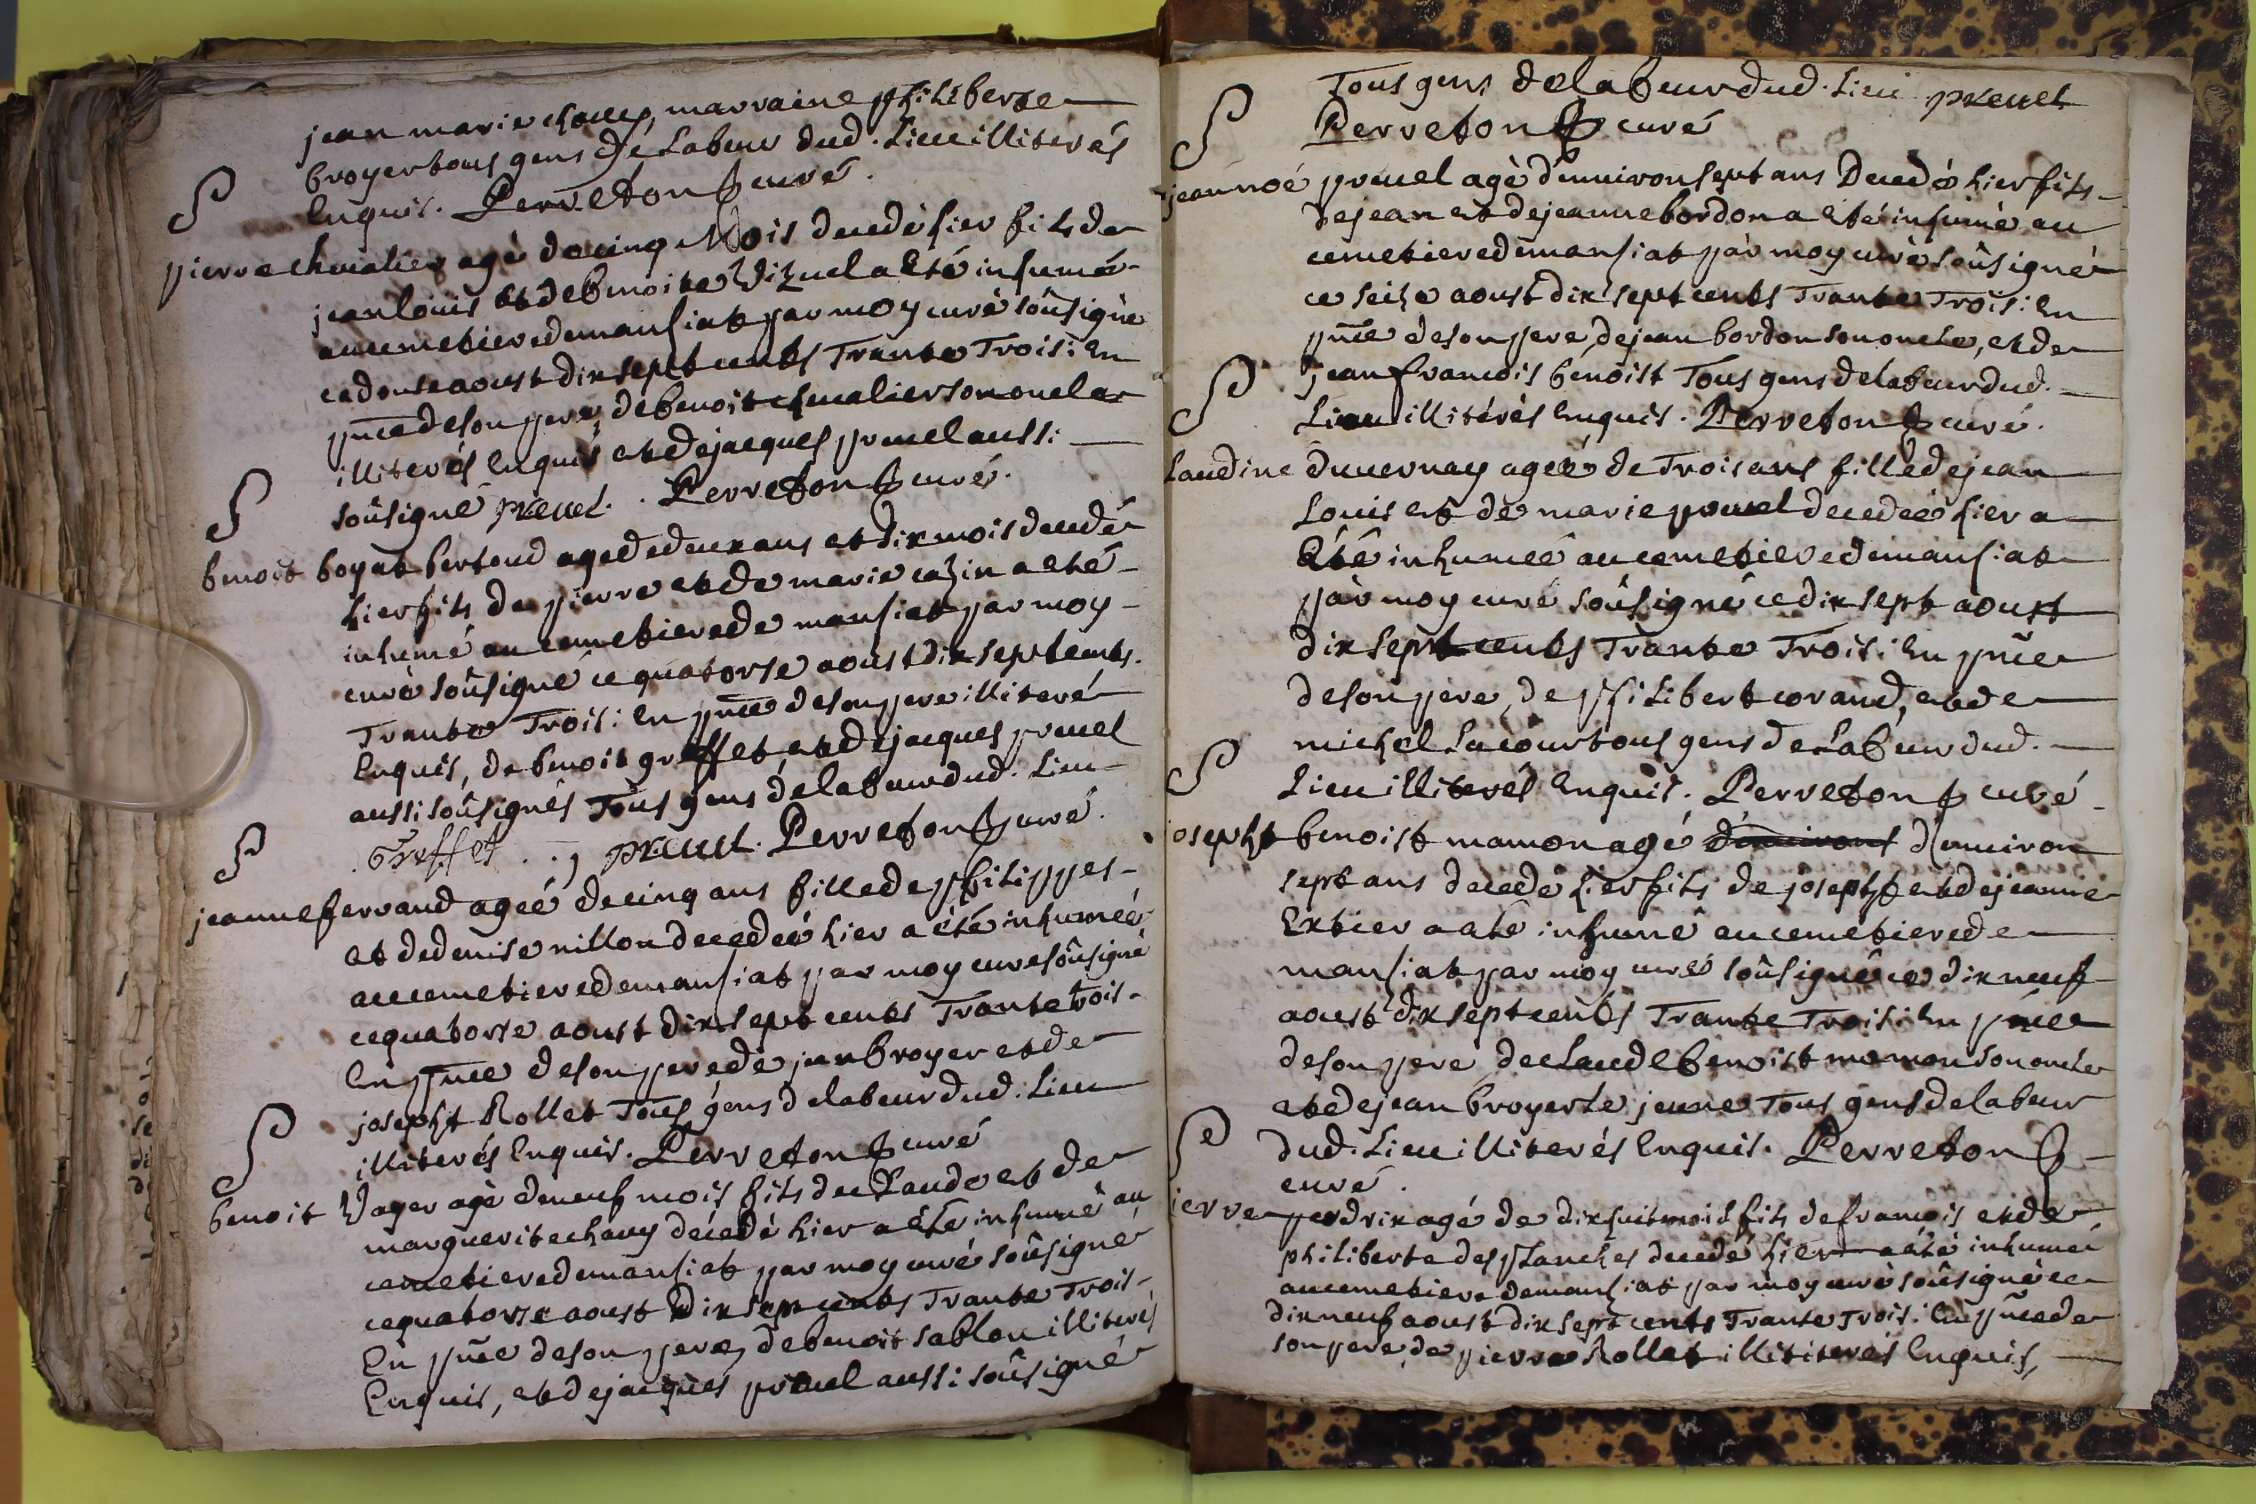 jean marie chavy, marraine philiberte
broyer tous gens de Labeur dud. Lieu illiterés
Enquis. Perreton curé.
S
pierre chevalier agé de cinq Mois decedé hier fils de
jean louis et de benoite Vizuel a Eté inhumé
au cemetiere de mansiat par moy curé soûsigné
ce douse aoust dix sept cents Trante Trois: En
pñce de son pere, de benoit chevalier son oncle
illiterés Enquis et de jacques pruel aussi
soûsigné preuel. Perreton curé.
S
benoit boyat bertoud agé de deux ans et dix mois decedé
hier fils de pierre et de marie cazin a eté
inhumé au cemetiere de mansiat par moy
curé soûsigné ce quatorse aoust dix sept cents
Trante Trois: En pñce de son pere illiteré
Enquis, de benoit greffet, et de jacques pruel
aussi soûsignés Tous gens de labeur dud. Lieu
Greffet . . , preuel. Perreton curé.
S
jeanne ferrand ageé de cinq ans fille de philippes
et de denise nillon decedeé hier a été inhumeé
au cemetiere de mansiat par moy curé soûsigné
ce quatorse aoust dix sept cents Trante trois
En pñce de son pere de jean broyer et de
josepht Rollet Tous gens de labeur dud. Lieu
illiterés Enquis. Perreton curé
S
benoit Vayer agé de neuf mois fils de claude et de
marguerite chavy decedé hier a été inhumé au
cemetiere de mansiat par moy curé soûsigné
ce quatorse aoust Dix sept cents Trante Trois
En pñce de son pere, de benoit sablon illiterés
Enquis, et de jacques pruel aussi soûsigné
Tous gens de labeur dud. Lieu preuel
Perreton curé
S
jean noé pruel agé d'environ sept ans Decedé hier fils
de jean et de jeanne bordon a Eté inhumé au
cemetiere de mansiat par moy curé soûsigné
ce seize aoust dix sept cents Trante Trois: En
pñce de son pere, de jean bordon son oncle, et de
jean francois benoist Tous gens de labeur dud.
Lieu illiterés Enquis. Perreton curé.
S
laudine duvernay ageé de Trois ans fille de jean
Louis et de marie pruel decedeé hier a
Eté inhumeé au cemetiere de mansiat
par moy curé soûsigné ce dix sept aoust
dix sept cents Trante Trois: En pñce
de son pere, de philibert corand, et de
michel Lacour tous gens de Labeur dud.
Lieu illiterés Enquis. Perreton curé
S
osepht benoist mamon agé d'environ d'environ
sept ans decedé hier fils de josepht et de jeanne
Extier a eté inhumé au cemetiere de
mansiat par moy curé soûsigné ce dix neuf
aoust dix sept cents Trante Trois: En pñce
de son pere de claude benoist mamon son oncle
et de jean broyer le jeune Tous gens de labeur
dud. Lieu illiterés Enquis. Perreton
curé.
S
ierre perdrix agé de dix huit mois fils de francois et de
philiberte des planches decedé hier a eté inhumé
au cemetiere de mansiat par moy curé soûsigné ce
dix neuf aoust dix sept cents Trante Trois: En pñce de
son pere, de pierre Rollet illititerés Enquis,